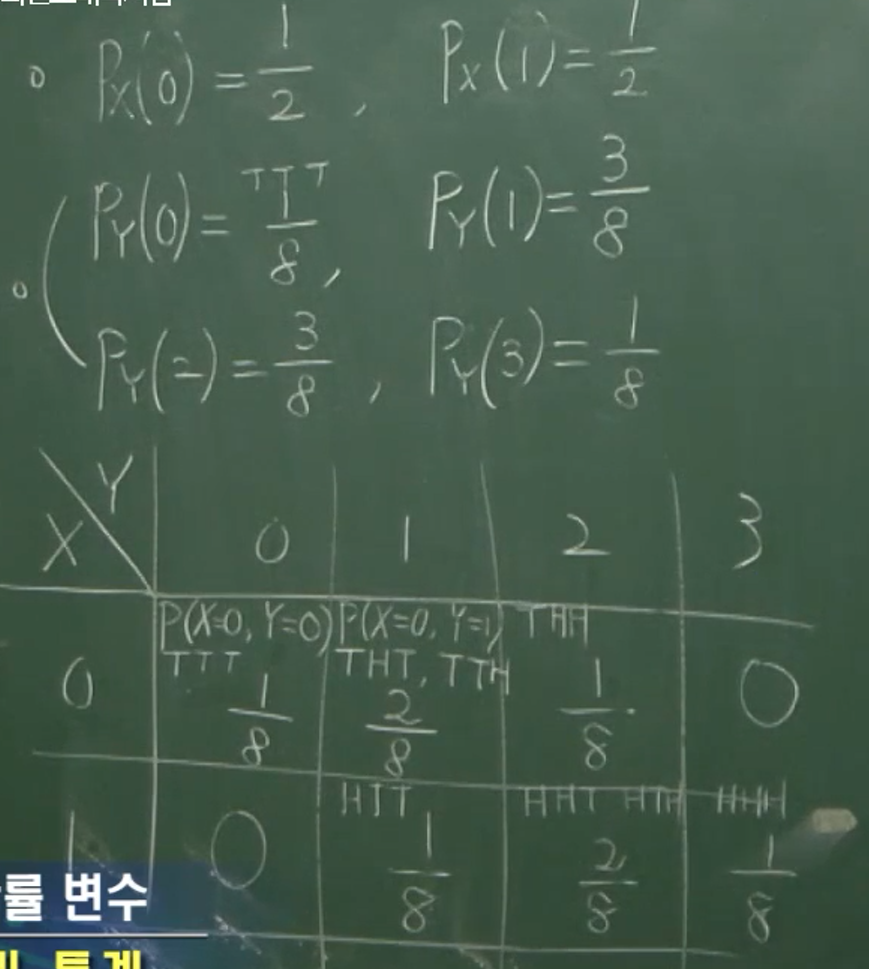 P_X(0) = 1/2 , P_X(1) = 1/2
TTT
P_Y(0) = 1/8 , P_Y(1) = 3/8
P_Y(2) = 3/8 , P_Y(3) = 1/8
Y
X 0 1 2 3
P(X=0, Y=0) P(X=0, Y=1) THH
TTT THT, TTH
0 1/8 2/8 1/8 0
HTT HHT HTH HHH
1 0 1/8 2/8 1/8
률 변수
통계